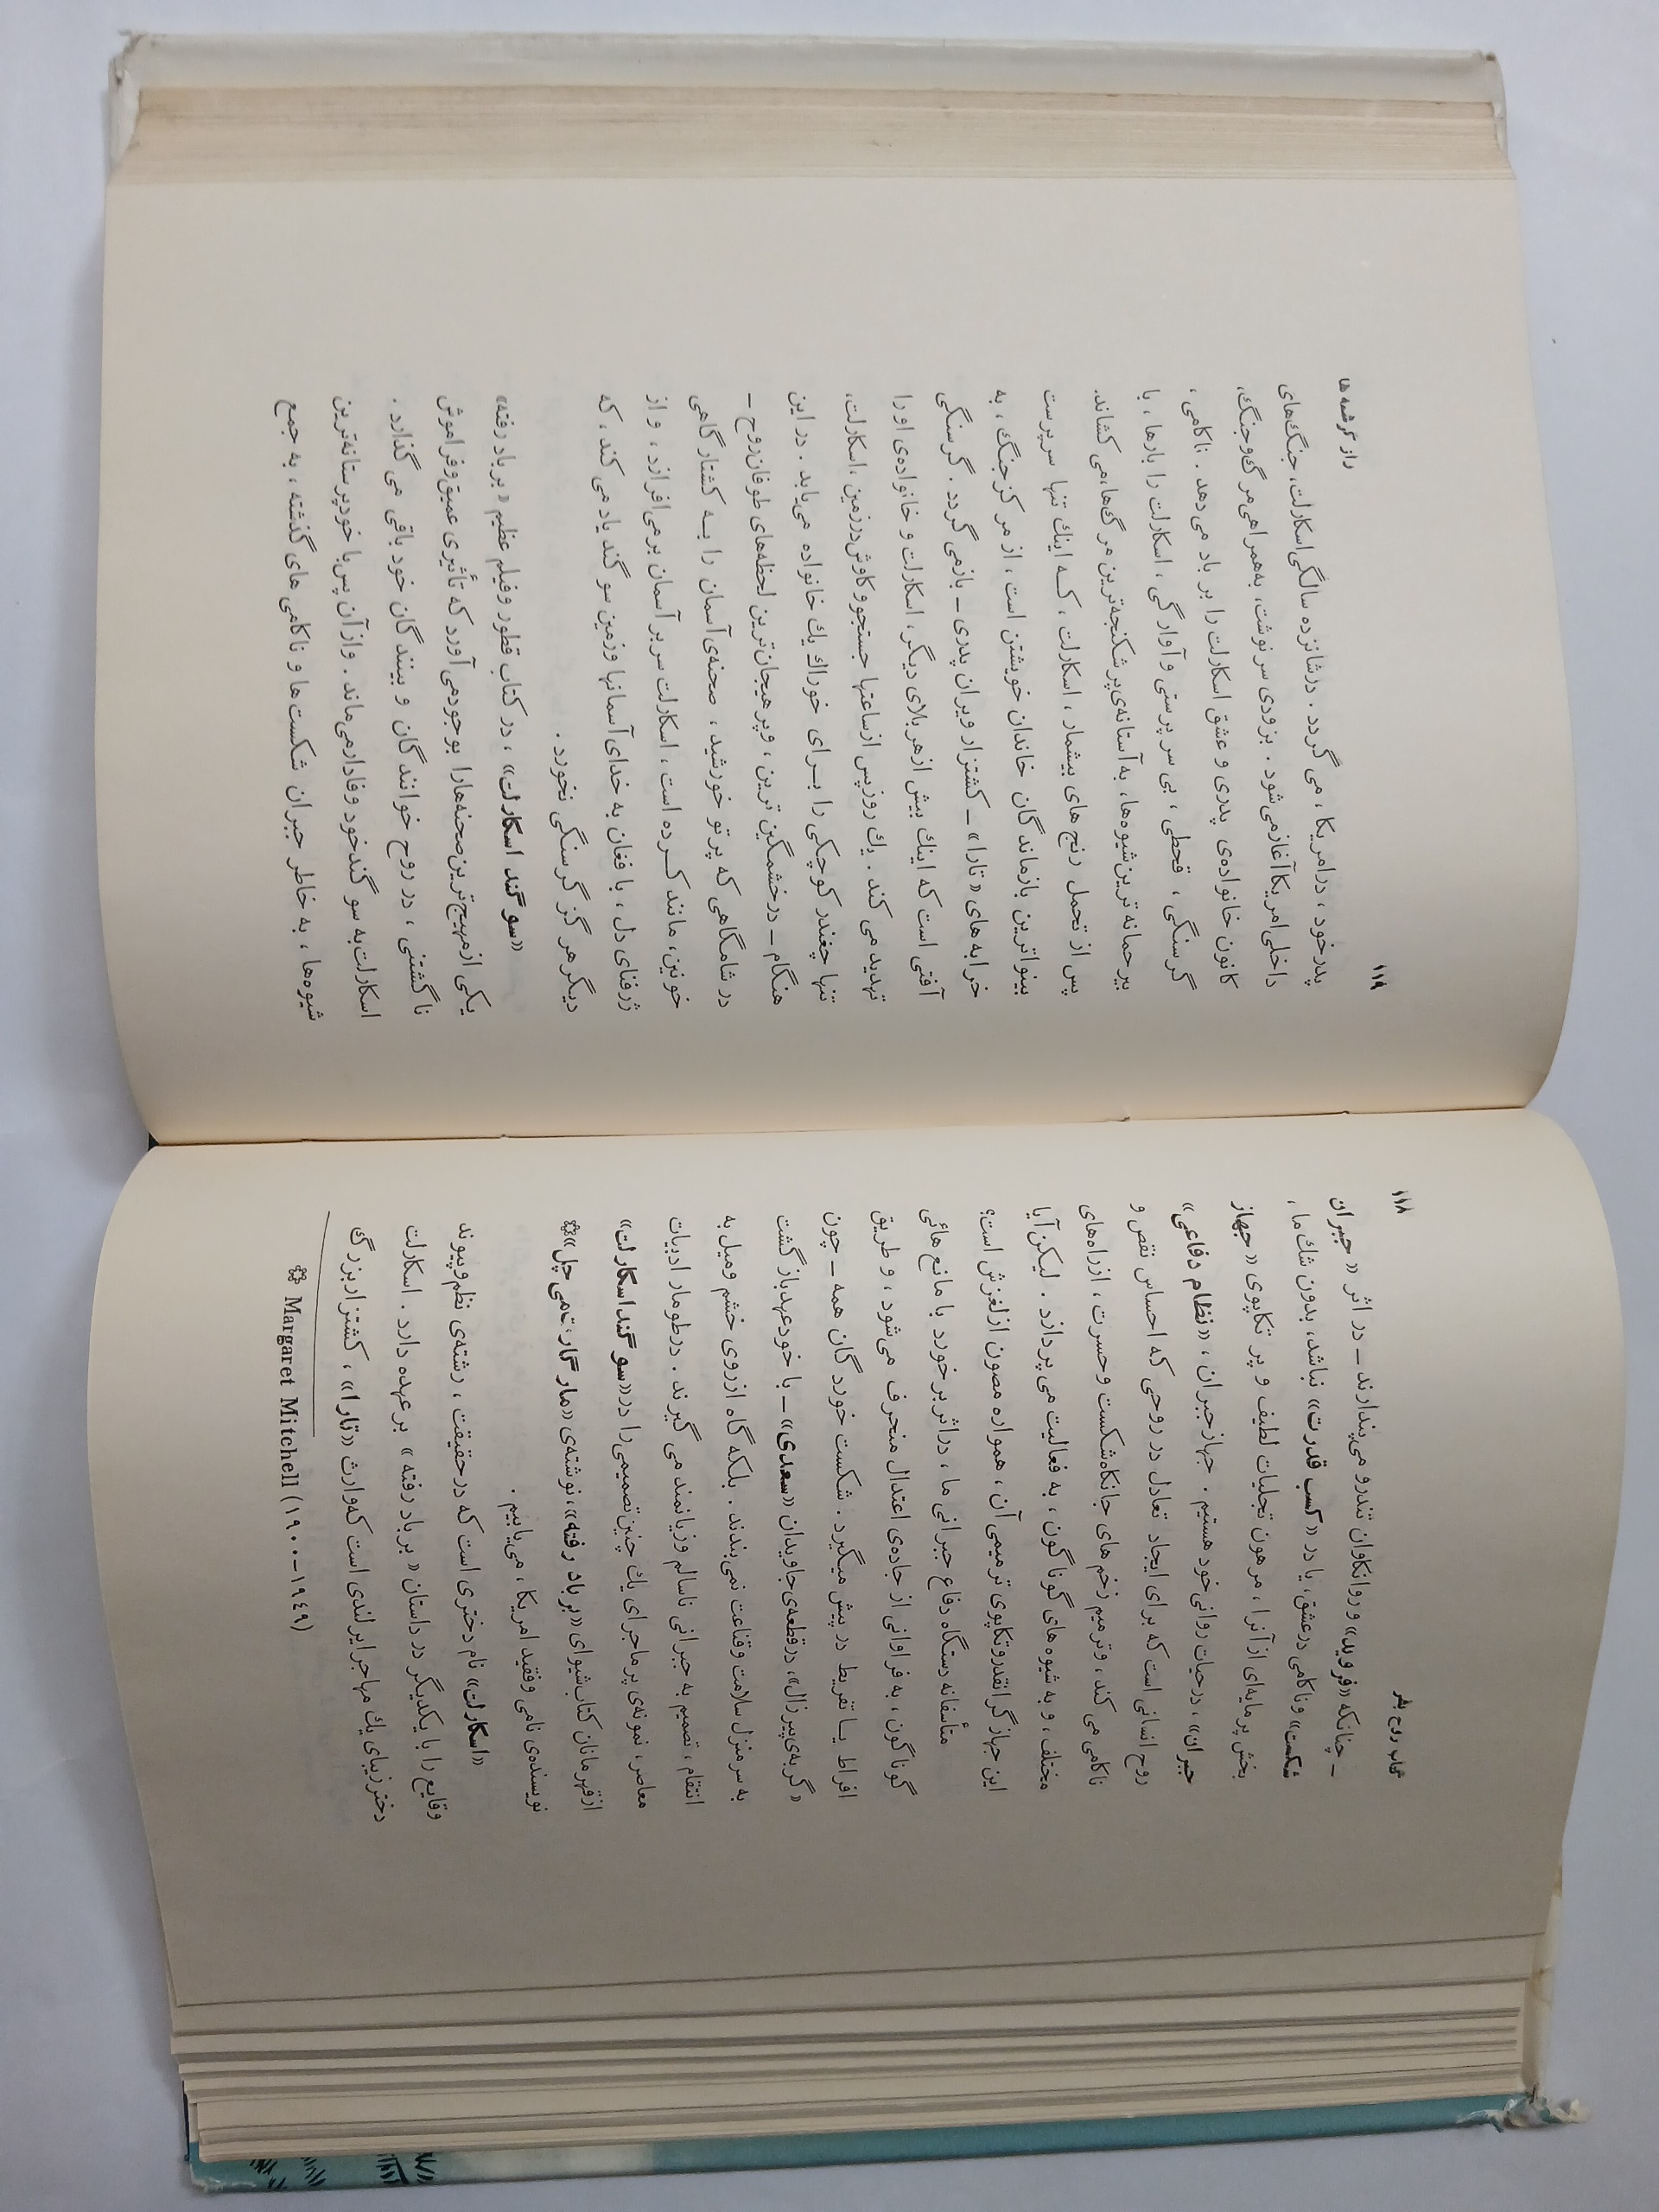 ۱۱۸ کتاب روح بشر
ـ چنانکه «فروید» و روانکاوان تندرو می‌پندارند ـ در اثر «جبران
شکست» و ناکامی در عشق، یا در «کسب قدرت» نباشد، بدون شك ما ،
بخش پرمایه‌ای از آنرا ، مرهون تجلیات لطیف و پر تکاپوی «جهاز
جبران» ، در حیات روانی خود هستیم . جهاز جبران ، «نظام دفاعی»
روح انسانی است که برای ایجاد تعادل در روحی که احساس نقص و
ناکامی می‌کند ، و ترمیم زخم‌های جانکاه شکست و حسرت ، از راه‌های
مختلف ، و به شیوه‌های گوناگون ، به فعالیت می‌پردازد . لیکن آیا
این جهاز گرانقدر و تکاپوی ترمیمی آن ، همواره مصون از لغزش است؟
متأسفانه دستگاه دفاع جبرانی ما ، در اثر برخورد با مانع‌هائی
گوناگون ، به فراوانی از جاده‌ی اعتدال منحرف می‌شود ، و طریق
افراط یا تفریط در پیش میگیرد . شکست خوردگان همه ـ چون
«گربه‌ی پیرزال» ، در قطعه‌ی جاویدان «سعدی» ـ با خود عهد بازگشت
به سرمنزل سلامت و قناعت نمی‌بندند . بلکه گاه از روی خشم و میل به
انتقام ، تصمیم به جبرانی ناسالم و زیانمند می گیرند . در طومار ادبیات
معاصر ، نمونه‌ی پرماجرای یك چنین تصمیمی را در «سوگند اسکارلت»
از قهرمانان کتاب شیوای «بر باد رفته» ، نوشته‌ی «مارگارت می چل»
نویسنده‌ی نامی و فقید امریکا ، می‌یابیم .
«اسکارلت» نام دختری است که در حقیقت ، رشته‌ی نظم و پیوند
وقایع را با یکدیگر در داستان « بر باد رفته » بر عهده دارد . اسکارلت
دختر زیبای یك مهاجر ایرلندی است که وارث «تارا» ، کشتزار بزرگ
Margaret Mitchell (۱۹۰۰-۱۹٤۹)
۱۱۹
پدر خود ، در امریکا ، می گردد . در شانزده سالگی اسکارلت، جنگ‌های
داخلی امریکا آغاز می‌شود . بزودی سرنوشت، به‌همراهی مرگ و جنگ،
کانون خانواده‌ی پدری و عشق اسکارلت را بر باد می‌دهد . ناکامی ،
گرسنگی ، قحطی ، بی سرپرستی و آوارگی ، اسکارلت را بارها ، با
بیرحمانه‌ترین شیوه‌ها، به آستانه‌ی پرشکنجه‌ترین مرگ‌ها، می کشاند.
پس از تحمل رنج‌های بیشمار ، اسکارلت ، کــه اینك تنها سرپرست
بینواترین بازماندگان خاندان خویشتن است ، از مرکز جنگ ، به
خرابه‌های «تارا» ـ کشتزار ویران پدری ـ بازمی گردد . گرسنگی
آفتی است که اینك بیش از هر بلای دیگر ، اسکارلت و خانواده‌ی او را
تهدید می کند . یك روز پس از ساعتها جستجو و کاوش در زمین ، اسکارلت،
تنها چغندر کوچکی را بــرای خوراك یك خانواده می‌یابد . در این
هنگام ـ در خشمگین ترین ، و پرهیجان‌ترین لحظه‌های طوفان روح ـ
در شامگاهی که پرتو خورشید ، صحنه‌ی آسمان را بــه کشتارگاهی
خونین، مانند کــرده است ، اسکارلت سر بر آسمان برمی‌افرازد ، و از
ژرفنای دل ، با فغان به خدای آسمانها و زمین سوگند یاد می کند ، که
دیگر هرگز گرسنگی نخورد .
«سوگند اسکارلت» ، در کتاب قطور و فیلم عظیم « بر باد رفته»
یکی از مهیج‌ترین صحنه‌ها را بوجود می آورد که تأثیری عمیق و فراموش
ناگشتنی ، در روح خوانندگان و بینندگان خود باقی می گذارد .
اسکارلت به سوگند خود وفادار می‌ماند . و از آن پس با خودپرستانه‌ترین
شیوه‌ها ، به خاطر جبران شکست‌ها و ناکامی های گذشته ، به جمع